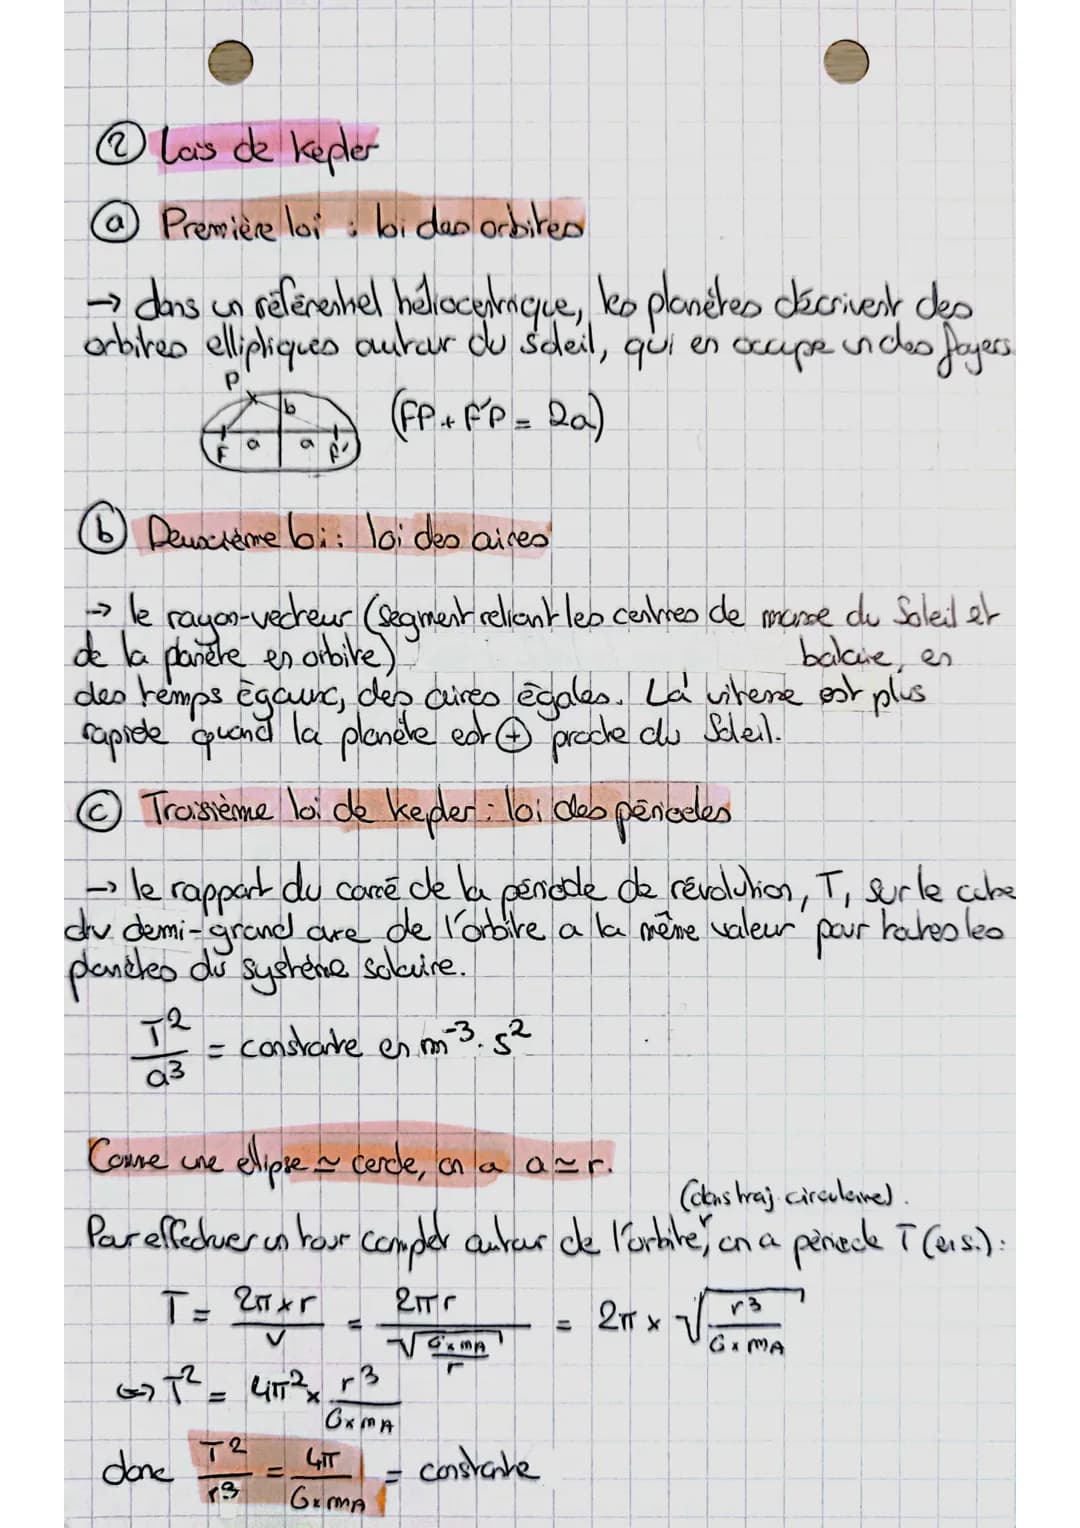 ② Lois de Kepler
ⓐ Première loi : loi des orbites
→ dans un référentiel héliocentrique, les planètes décrivent des
orbites elliptiques autour du Soleil, qui en occupe un des foyers.
P
b
F a a F'
(FP + F'P = 2a)
ⓑ Deuxième loi : loi des aires
→ le rayon-vecteur (segment reliant les centres de masse du Soleil et
de la planète en orbite) balaie, en
des temps égaux, des aires égales. La vitesse est plus
rapide quand la planète est ⊕ proche du Soleil.
ⓒ Troisième loi de Kepler : loi des périodes
→ le rapport du carré de la période de révolution, T, sur le cube
du demi-grand axe de l'orbite a la même valeur pour toutes les
planètes du système solaire.
T²/a³ = constante en m⁻³. s²
Comme une ellipse ≃ cercle, on a a ≃ r.
(dans traj. circulaire).
Pour effectuer un tour complet autour de l'orbite, on a période T (en s.) :
T = 2π×r/v = 2πr/√(G×mA/r) = 2π × √(r³/G×mA)
⇔ T² = 4π² × r³/G×mA
donc T²/r³ = 4π/G×mA = constante